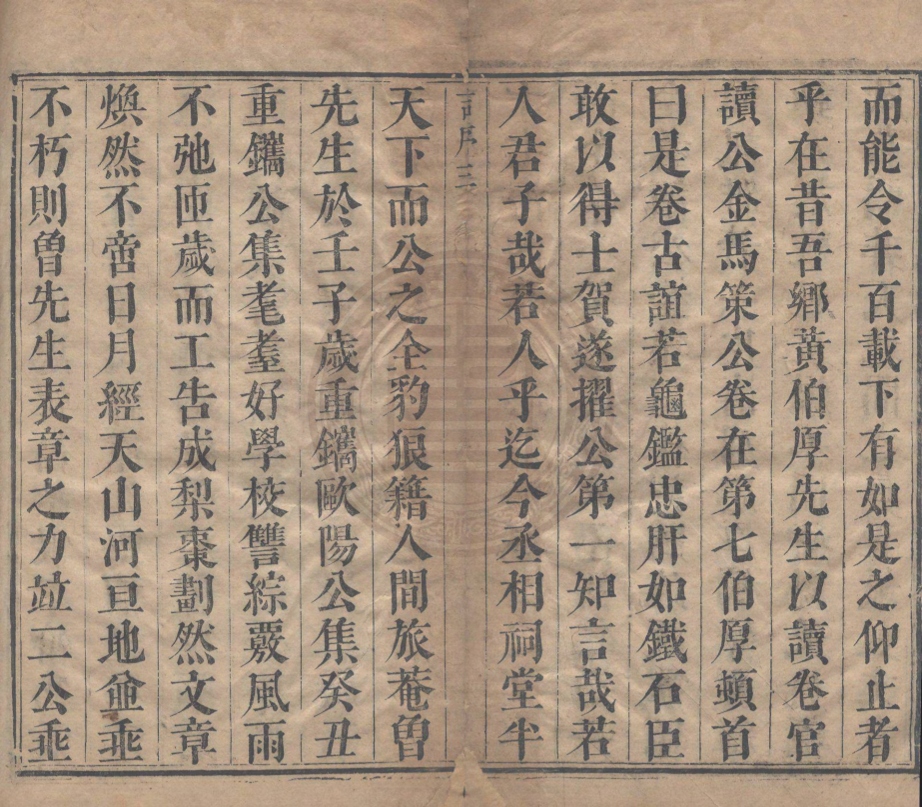 而能令千百載下有如是之仰止者
乎在昔吾鄉黃伯厚先生以讀卷官
讀公金馬策公卷在第七伯厚頓首
曰是卷古誼若龜鑑忠肝如鐵石臣
敢以得士賀遂擢公第一知言哉若
人君子哉若人乎迄今丞相祠堂半
序三
天下而公之全豹狼籍人間旅菴曽
先生於壬子歲重鐫歐陽公集癸丑
重鐫公集耄耋好學校讐綜覈風雨
不弛匝歲而工告成梨棗劃然文章
煥然不啻日月經天山河亘地並垂
不朽則曽先生表章之力竝二公垂